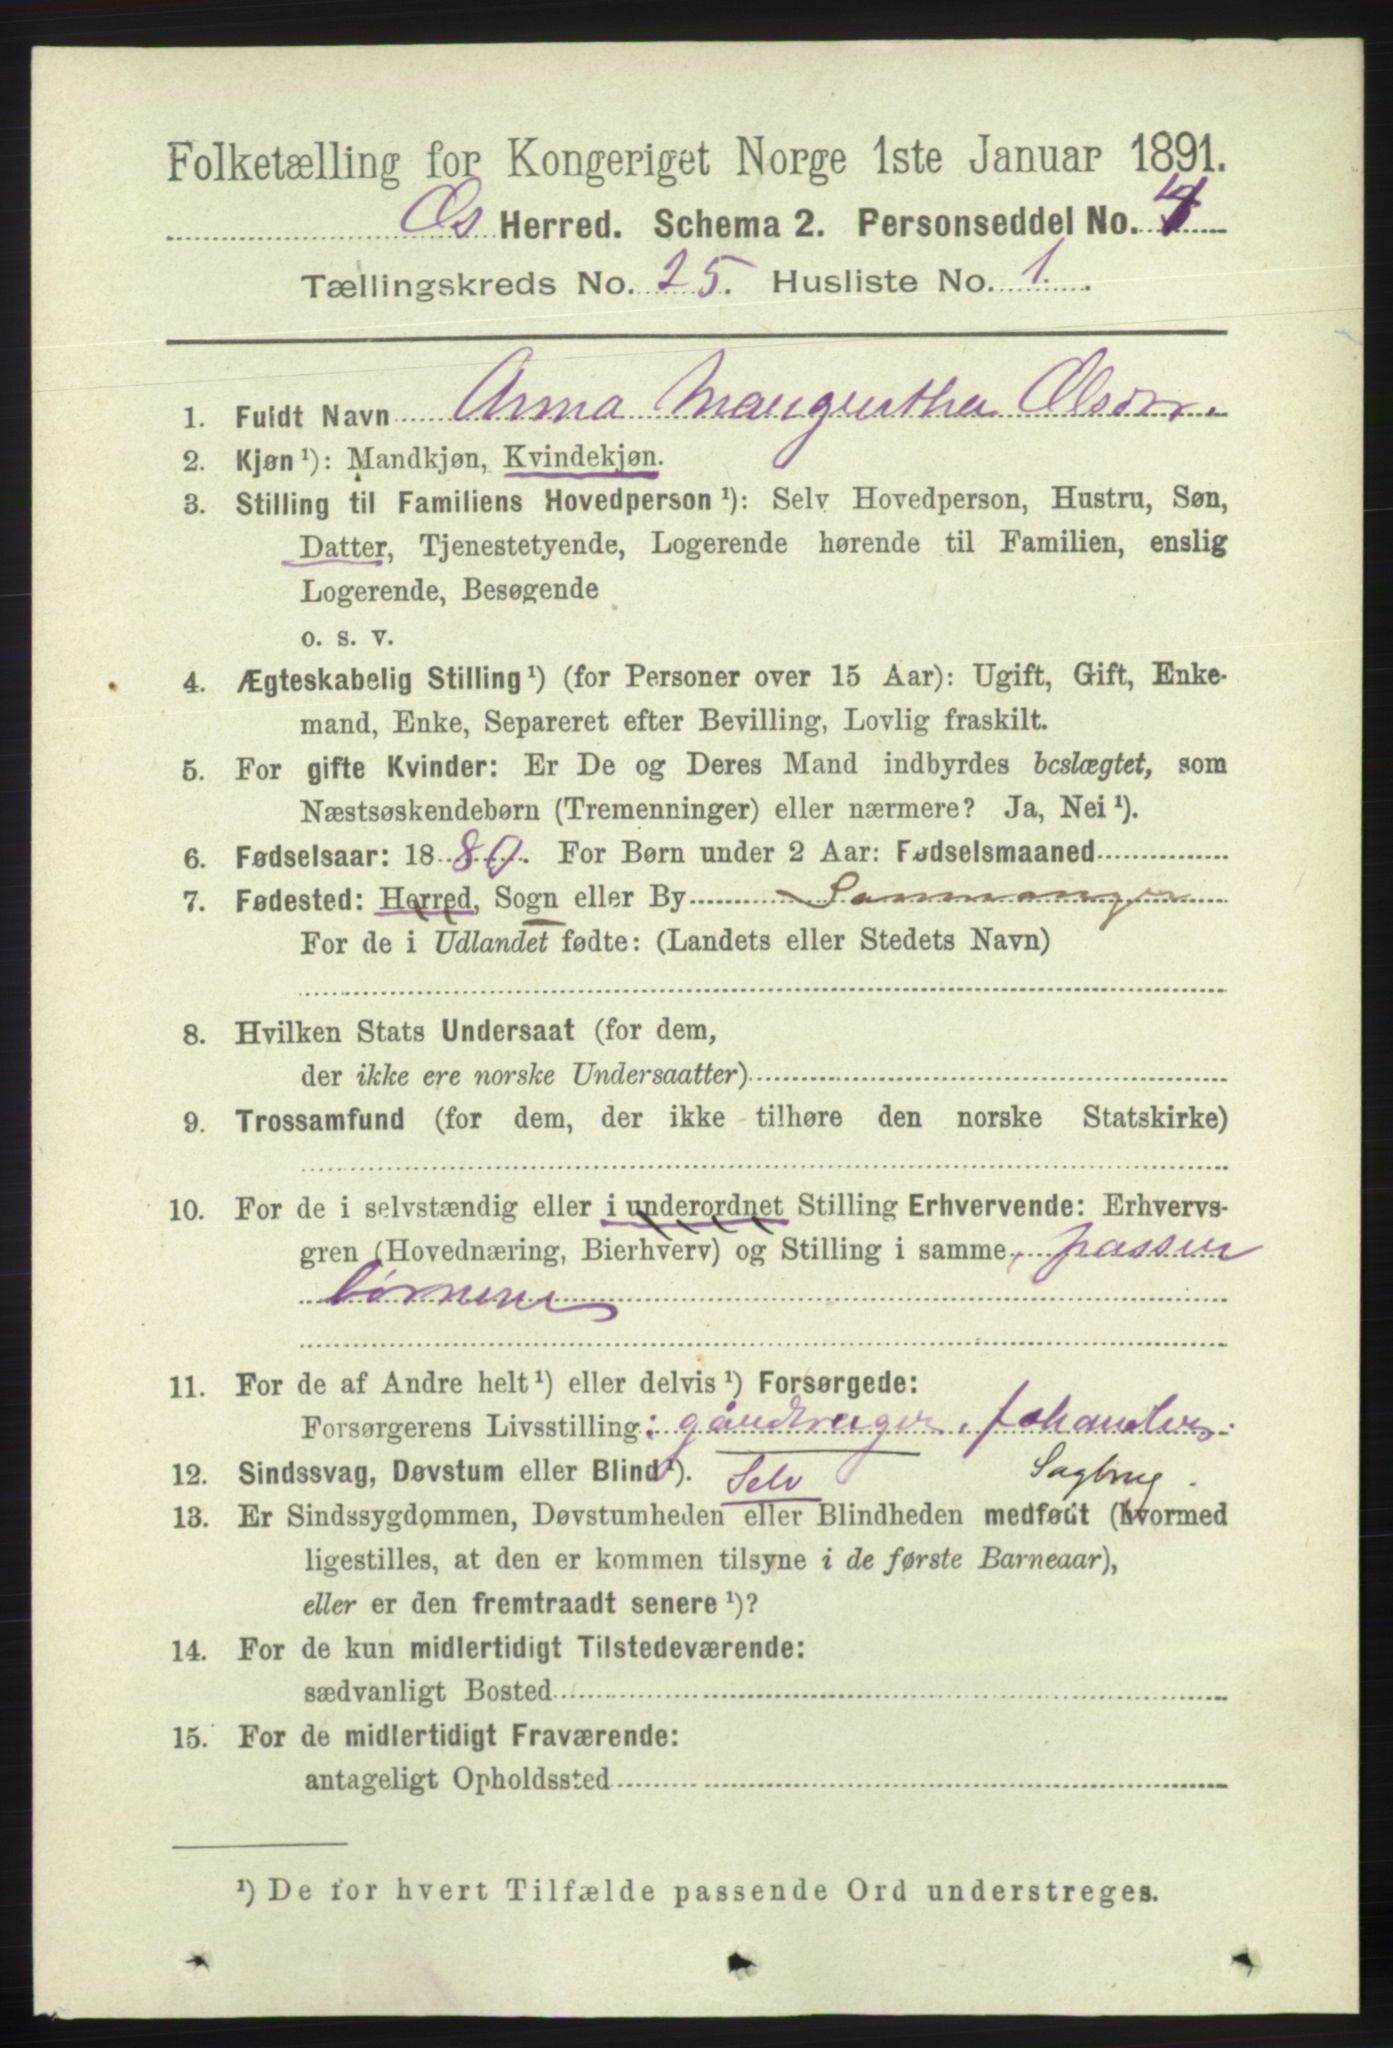 Folketælling for Kongeriget Norge 1ste Januar 1891.
Os Herred. Schema 2. Personseddel No. 4
Tællingskreds No. 25. Husliste No. 1.
1. Fuldt Navn Anna Margrethe Olsen.
2. Kjøn ¹): Mandkjøn, Kvindekjøn.
3. Stilling til Familiens Hovedperson ¹): Selv Hovedperson, Hustru, Søn,
Datter, Tjenestetyende, Logerende hørende til Familien, enslig
Logerende, Besøgende
o. s. v.
4. Ægteskabelig Stilling ¹) (for Personer over 15 Aar): Ugift, Gift, Enke-
mand, Enke, Separeret efter Bevilling, Lovlig fraskilt.
5. For gifte Kvinder: Er De og Deres Mand indbyrdes beslægtet, som
Næstsøskendebørn (Tremenninger) eller nærmere? Ja, Nei ¹).
6. Fødselsaar: 1880. For Børn under 2 Aar: Fødselsmaaned
7. Fødested: Herred, Sogn eller By Sammanger
For de i Udlandet fødte: (Landets eller Stedets Navn)
8. Hvilken Stats Undersaat (for dem,
der ikke ere norske Undersaatter)
9. Trossamfund (for dem, der ikke tilhøre den norske Statskirke)
10. For de i selvstændig eller i underordnet Stilling Erhvervende: Erhvervs-
gren (Hovednæring, Bierhverv) og Stilling i samme, passer
børnene
11. For de af Andre helt ¹) eller delvis ¹) Forsørgede:
Forsørgerens Livsstilling:
12. Sindssvag, Døvstum eller Blind ¹). Selv Sagbrug.
13. Er Sindssygdommen, Døvstumheden eller Blindheden medfødt (hvormed
ligestilles, at den er kommen tilsyne i de første Barneaar),
eller er den fremtraadt senere ¹)?
14. For de kun midlertidigt Tilstedeværende:
sædvanligt Bosted
15. For de midlertidigt Fraværende:
antageligt Opholdssted
¹) De for hvert Tilfælde passende Ord understreges.